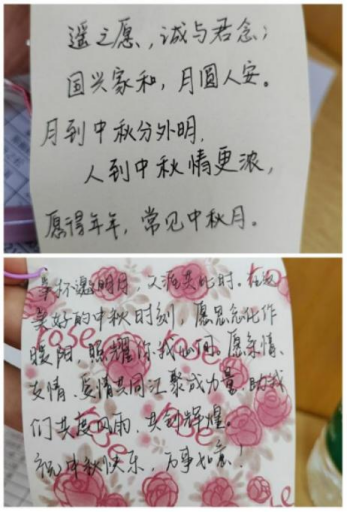 遥之愿，诚与君念；
国兴家和，月圆人安。
月到中秋分外明，
人到中秋情更浓，
愿得年年，常见中秋月。
举杯邀明月，天涯共此时。在这
美好的中秋时刻，愿思念化作
暖阳，照耀你我心间。愿亲情、
友情、爱情共同汇聚成力量，助我
们共度风雨，共创辉煌。
祝中秋快乐，万事如意！
rose
rose